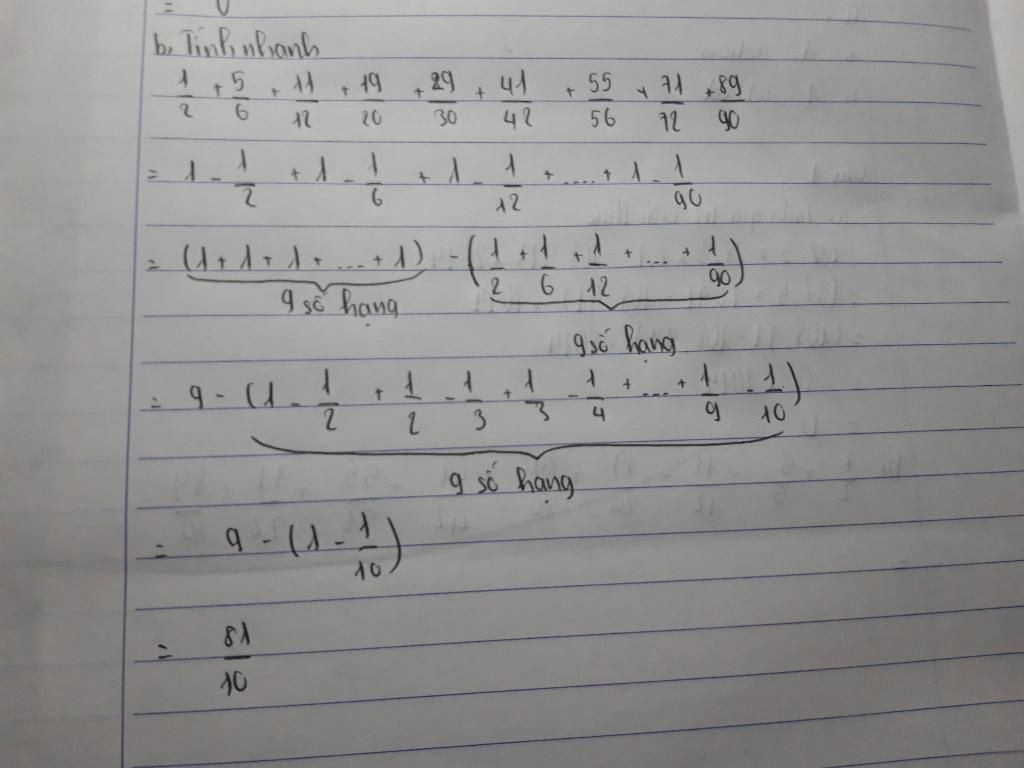 = 0
b, Tính nhanh
1/2 + 5/6 + 11/12 + 19/20 + 29/30 + 41/42 + 55/56 + 71/72 + 89/90
= 1 - 1/2 + 1 - 1/6 + 1 - 1/12 + .... + 1 - 1/90
= (1 + 1 + 1 + ... + 1) - (1/2 + 1/6 + 1/12 + ... + 1/90)
9 số hạng
9 số hạng
= 9 - (1 - 1/2 + 1/2 - 1/3 + 1/3 - 1/4 + ... + 1/9 - 1/10)
9 số hạng
= 9 - (1 - 1/10)
= 81/10